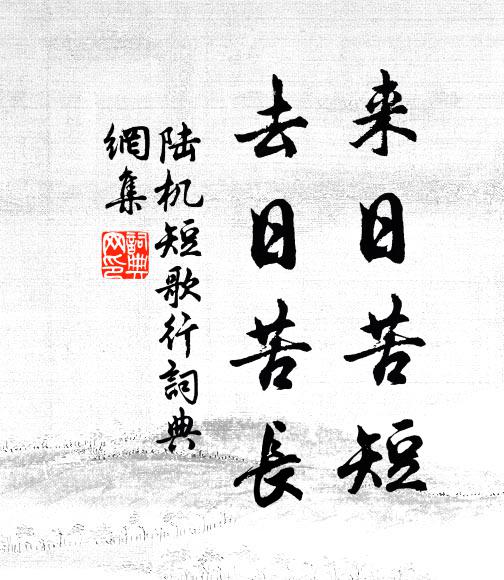 来日苦短
去日苦長
陆机短歌行詞典
網集
詞典
网印